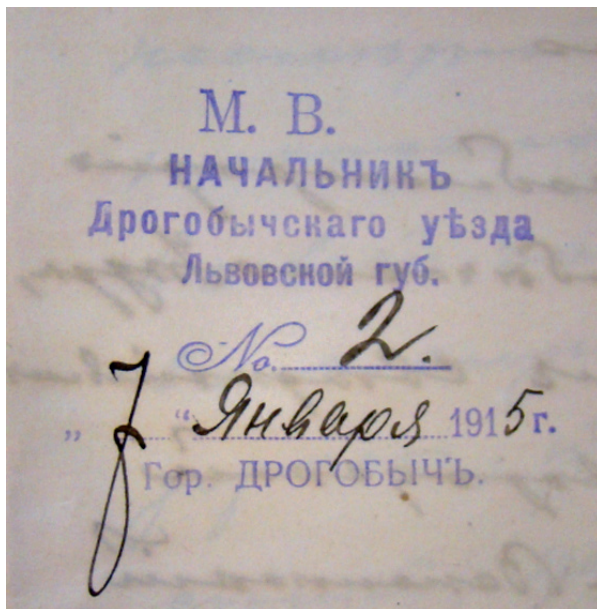 М. В.
НАЧАЛЬНИКЪ
Дрогобычскаго уѣзда
Львовской губ.
No. 2.
„7“ Января 1915 г.
Гор. ДРОГОБЫЧЪ.